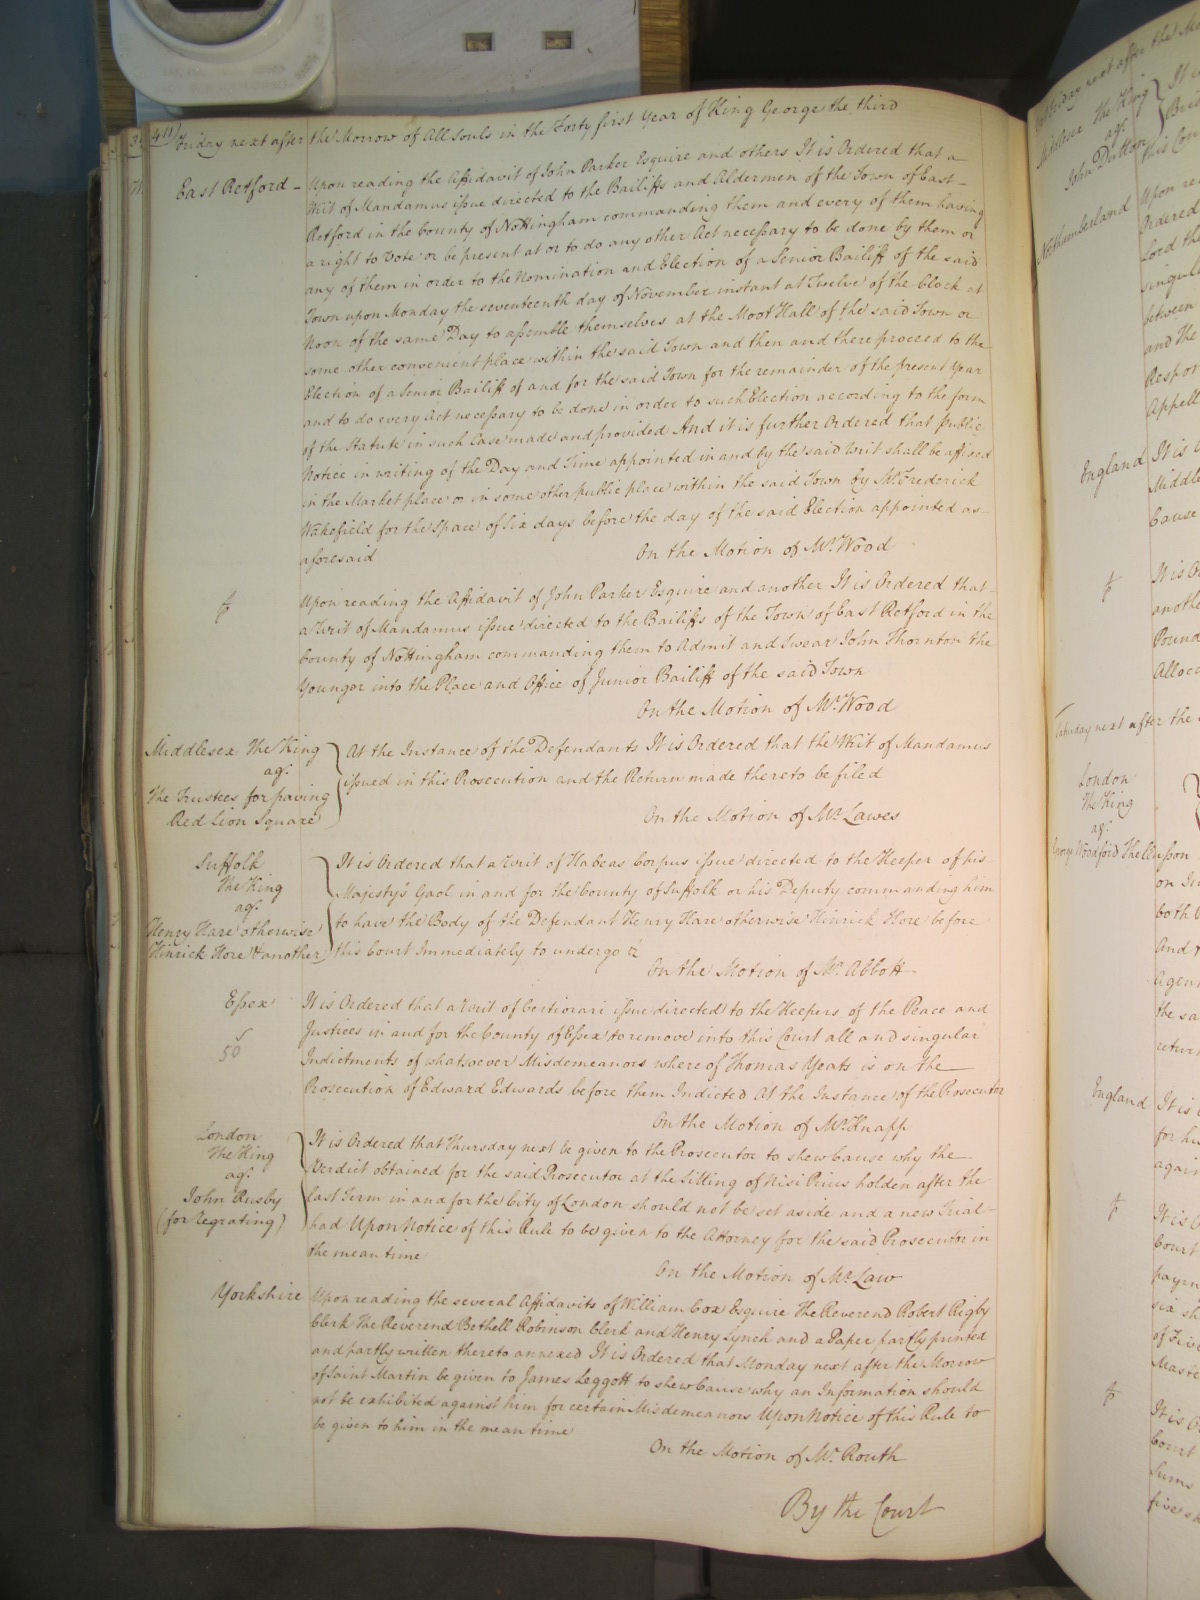 411) Friday next after the Morrow of All Souls in the Forty first Year of King George the third
East Retford - Upon reading the Affidavit of John Parker Esquire and others It is Ordered that a
Writ of Mandamus issue directed to the Bailiffs and Aldermen of the Town of East-
Retford in the County of Nottingham commanding them and every of them having
a right to Vote or be present at or to do any other Act necessary to be done by them or
any of them in order to the Nomination and Election of a Senior Bailiff of the said
Town upon Monday the seventeenth day of November instant at Twelve of the Clock at
Noon of the same Day to assemble themselves at the Moot Hall of the said Town or
some other convenient place within the said Town and then and there proceed to the
Election of a Senior Bailiff of and for the said Town for the remainder of the present Year
and to do every Act necessary to be done in order to such Election according to the form
of the Statute in such Case made and provided And it is further Ordered that public
Notice in writing of the Day and Time appointed in and by the said Writ shall be affixed
in the Market place or in some other public place within the said Town by Mr. Frederick
Wakefield for the Space of Six days before the day of the said Election appointed as-
aforesaid
On the Motion of Mr. Wood
Upon reading the Affidavit of John Parker Esquire and another It is Ordered that-
a Writ of Mandamus issue directed to the Bailiffs of the Town of East Retford in the
County of Nottingham commanding them to Admit and Swear John Thornton the
Younger into the Place and Office of Junior Bailiff of the said Town
On the Motion of Mr. Wood
Middlesex The King
agt.
The Trustees for paving
Red Lion Square
At the Instance of the Defendants It is Ordered that the Writ of Mandamus
issued in this Prosecution and the Return made thereto be filed
On the Motion of Mr. Lawes
Suffolk
The King
agt.
Henry Hare otherwise
Hinrick Hore & another
It is Ordered that a Writ of Habeas Corpus issue directed to the Keeper of his
Majesty's Gaol in and for the County of Suffolk or his Deputy commanding him
to have the Body of the Defendant Henry Hare otherwise Hinrick Hore before
this Court Immediately to undergo &c
On the Motion of Mr. Abbott
Essex
50
It is Ordered that a Writ of Certiorari issue directed to the Keepers of the Peace and
Justices in and for the County of Essex to remove into this Court all and singular
Indictments of whatsoever Misdemeanors whereof Thomas Yeats is on the
Prosecution of Edward Edwards before them Indicted At the Instance of the Prosecutor
On the Motion of Mr. Knapp
London
The King
agt.
John Rusby
(for Regrating)
It is Ordered that Thursday next be given to the Prosecutor to shew Cause why the
Verdict obtained for the said Prosecutor at the Sitting of Nisi Prius holden after the
last Term in and for the City of London should not be set aside and a new Trial-
had Upon Notice of this Rule to be given to the Attorney for the said Prosecutor in
the mean time
On the Motion of Mr. Law
Yorkshire
Upon reading the several Affidavits of William Cox Esquire The Reverend Robert Rigby
Clerk The Reverend Bethell Robinson Clerk and Henry Lynch and a Paper partly printed
and partly written thereto annexed It is Ordered that Monday next after the Morrow
of Saint Martin be given to James Leggott to shew Cause why an Information should
not be exhibited against him for certain Misdemeanors Upon Notice of this Rule to
be given to him in the mean time
On the Motion of Mr. Routh
By the Court
Friday next after the
The King
agt.
John Dutton
this
Northumberland
Upon
Ordered
Lord
between
and the
Appell
England
It is
Middle
Cause
It is
another
Pound
Saturday next after the
London
The King
agt.
George Woodford Thellusson
on
both
And
Agent
the
return
England
It is
for
again
It is
Court
six
of Five
Master
It is
Court
Sums
five